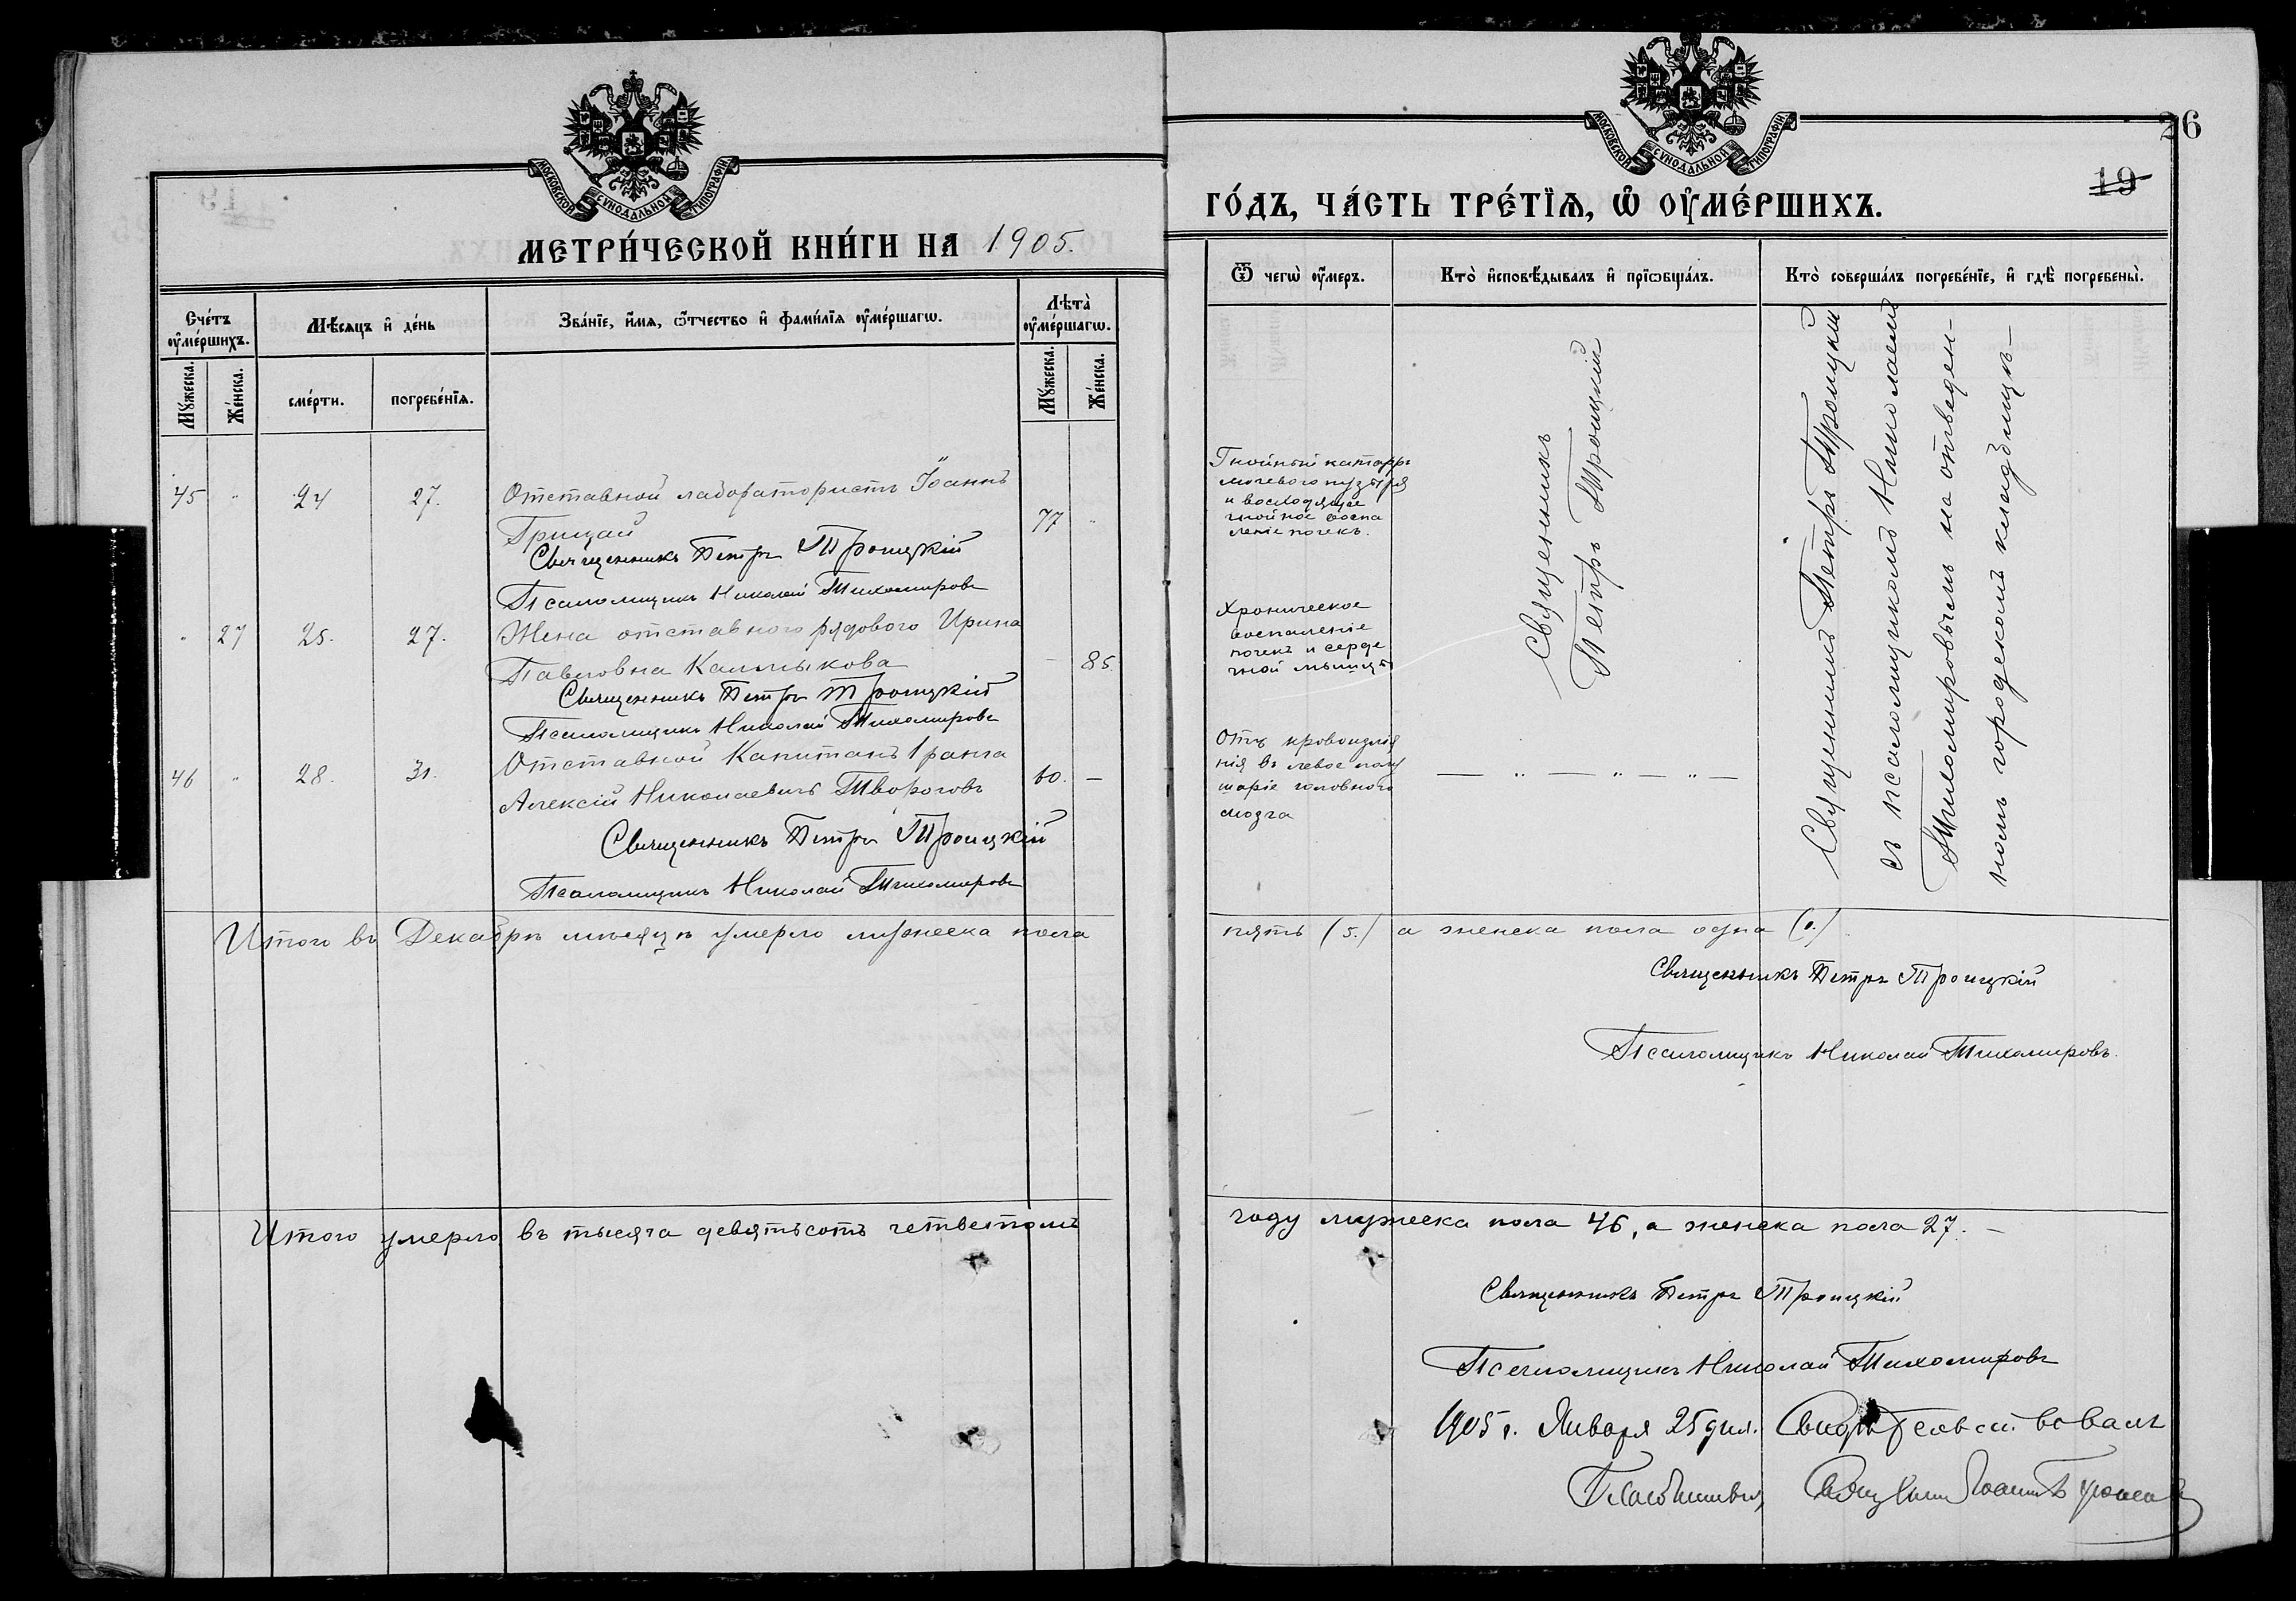 МОСКОВСКОЙ СУНОДАЛЬНОЙ ТИПОГРАФІИ
МЕТРИ́ЧЕСКОЙ КНИ́ГИ НА 1905.
Сче́тъ ᲂу҆ме́ршихъ.
Мѣ́сяцъ и҆ де́нь
Зва́нїе, и҆́мѧ, ѻ҆́тчество и҆ фами́лїѧ ᲂу҆ме́ршагѡ.
Лѣта̀ ᲂу҆ме́ршагѡ.
Мꙋ́жеска.
Же́нска.
сме́рти.
погребе́нїѧ.
Мꙋ́жеска.
Же́нска.
45 " 24 27. Отставной лаборатористъ Іоаннъ
Грицай 77 "
Священникъ Петръ Троицкій
Псаломщикъ Николай Тихомировъ
" 27 25. 27. Жена отставного рядового Ирина
Павловна Калмыкова – 85.
Священникъ Петръ Троицкій
Псаломщикъ Николай Тихомировъ
46 " 28. 31. Отставной Капитанъ 1 ранга
Алексій Николаевичъ Твороговъ 60. –
Священникъ Петръ Троицкій
Псаломщикъ Николай Тихомировъ
Итого въ Декабрѣ мѣсяцѣ умерло мужеска пола
Итого умерло въ тысяча девятьсотъ четвертомъ
МОСКОВСКОЙ СУНОДАЛЬНОЙ ТИПОГРАФІИ
26
19
ГО́ДЪ, ЧА́СТЬ ТРЕ́ТЇѦ, Ѡ҆ ОУ҆МЕ́РШИХЪ.
Ѿ чегѡ̀ ᲂу҆́меръ.
Кто̀ и҆сповѣ́дывалъ и҆ прїѡбща́лъ.
Кто̀ соверша́лъ погребе́нїе, и҆ гдѣ̀ погребены̀.
Гнойный катарръ
мочевого пузыря
и восходящее
гнойное воспа
леніе почекъ.
Хроническое
воспаленіе
почекъ и серде
чной мышцы
Отъ кровоизлія
нія въ левое полу
шаріе головного
мозга
Священникъ
Петръ Троицкій
— " — " — " —
Священникъ Петръ Троицкій
съ псаломщикомъ Николаемъ
Тихомировымъ на отведен-
номъ городскомъ кладбищѣ –
пять (5.) а женска пола одна (1.)
Священникъ Петръ Троицкій
Псаломщикъ Николай Тихомировъ.
году мужеска пола 46, а женска пола 27. –
Священникъ Петръ Троицкій
Псаломщикъ Николай Тихомировъ
1905 г. Января 25 дня. Свидѣтельствовалъ